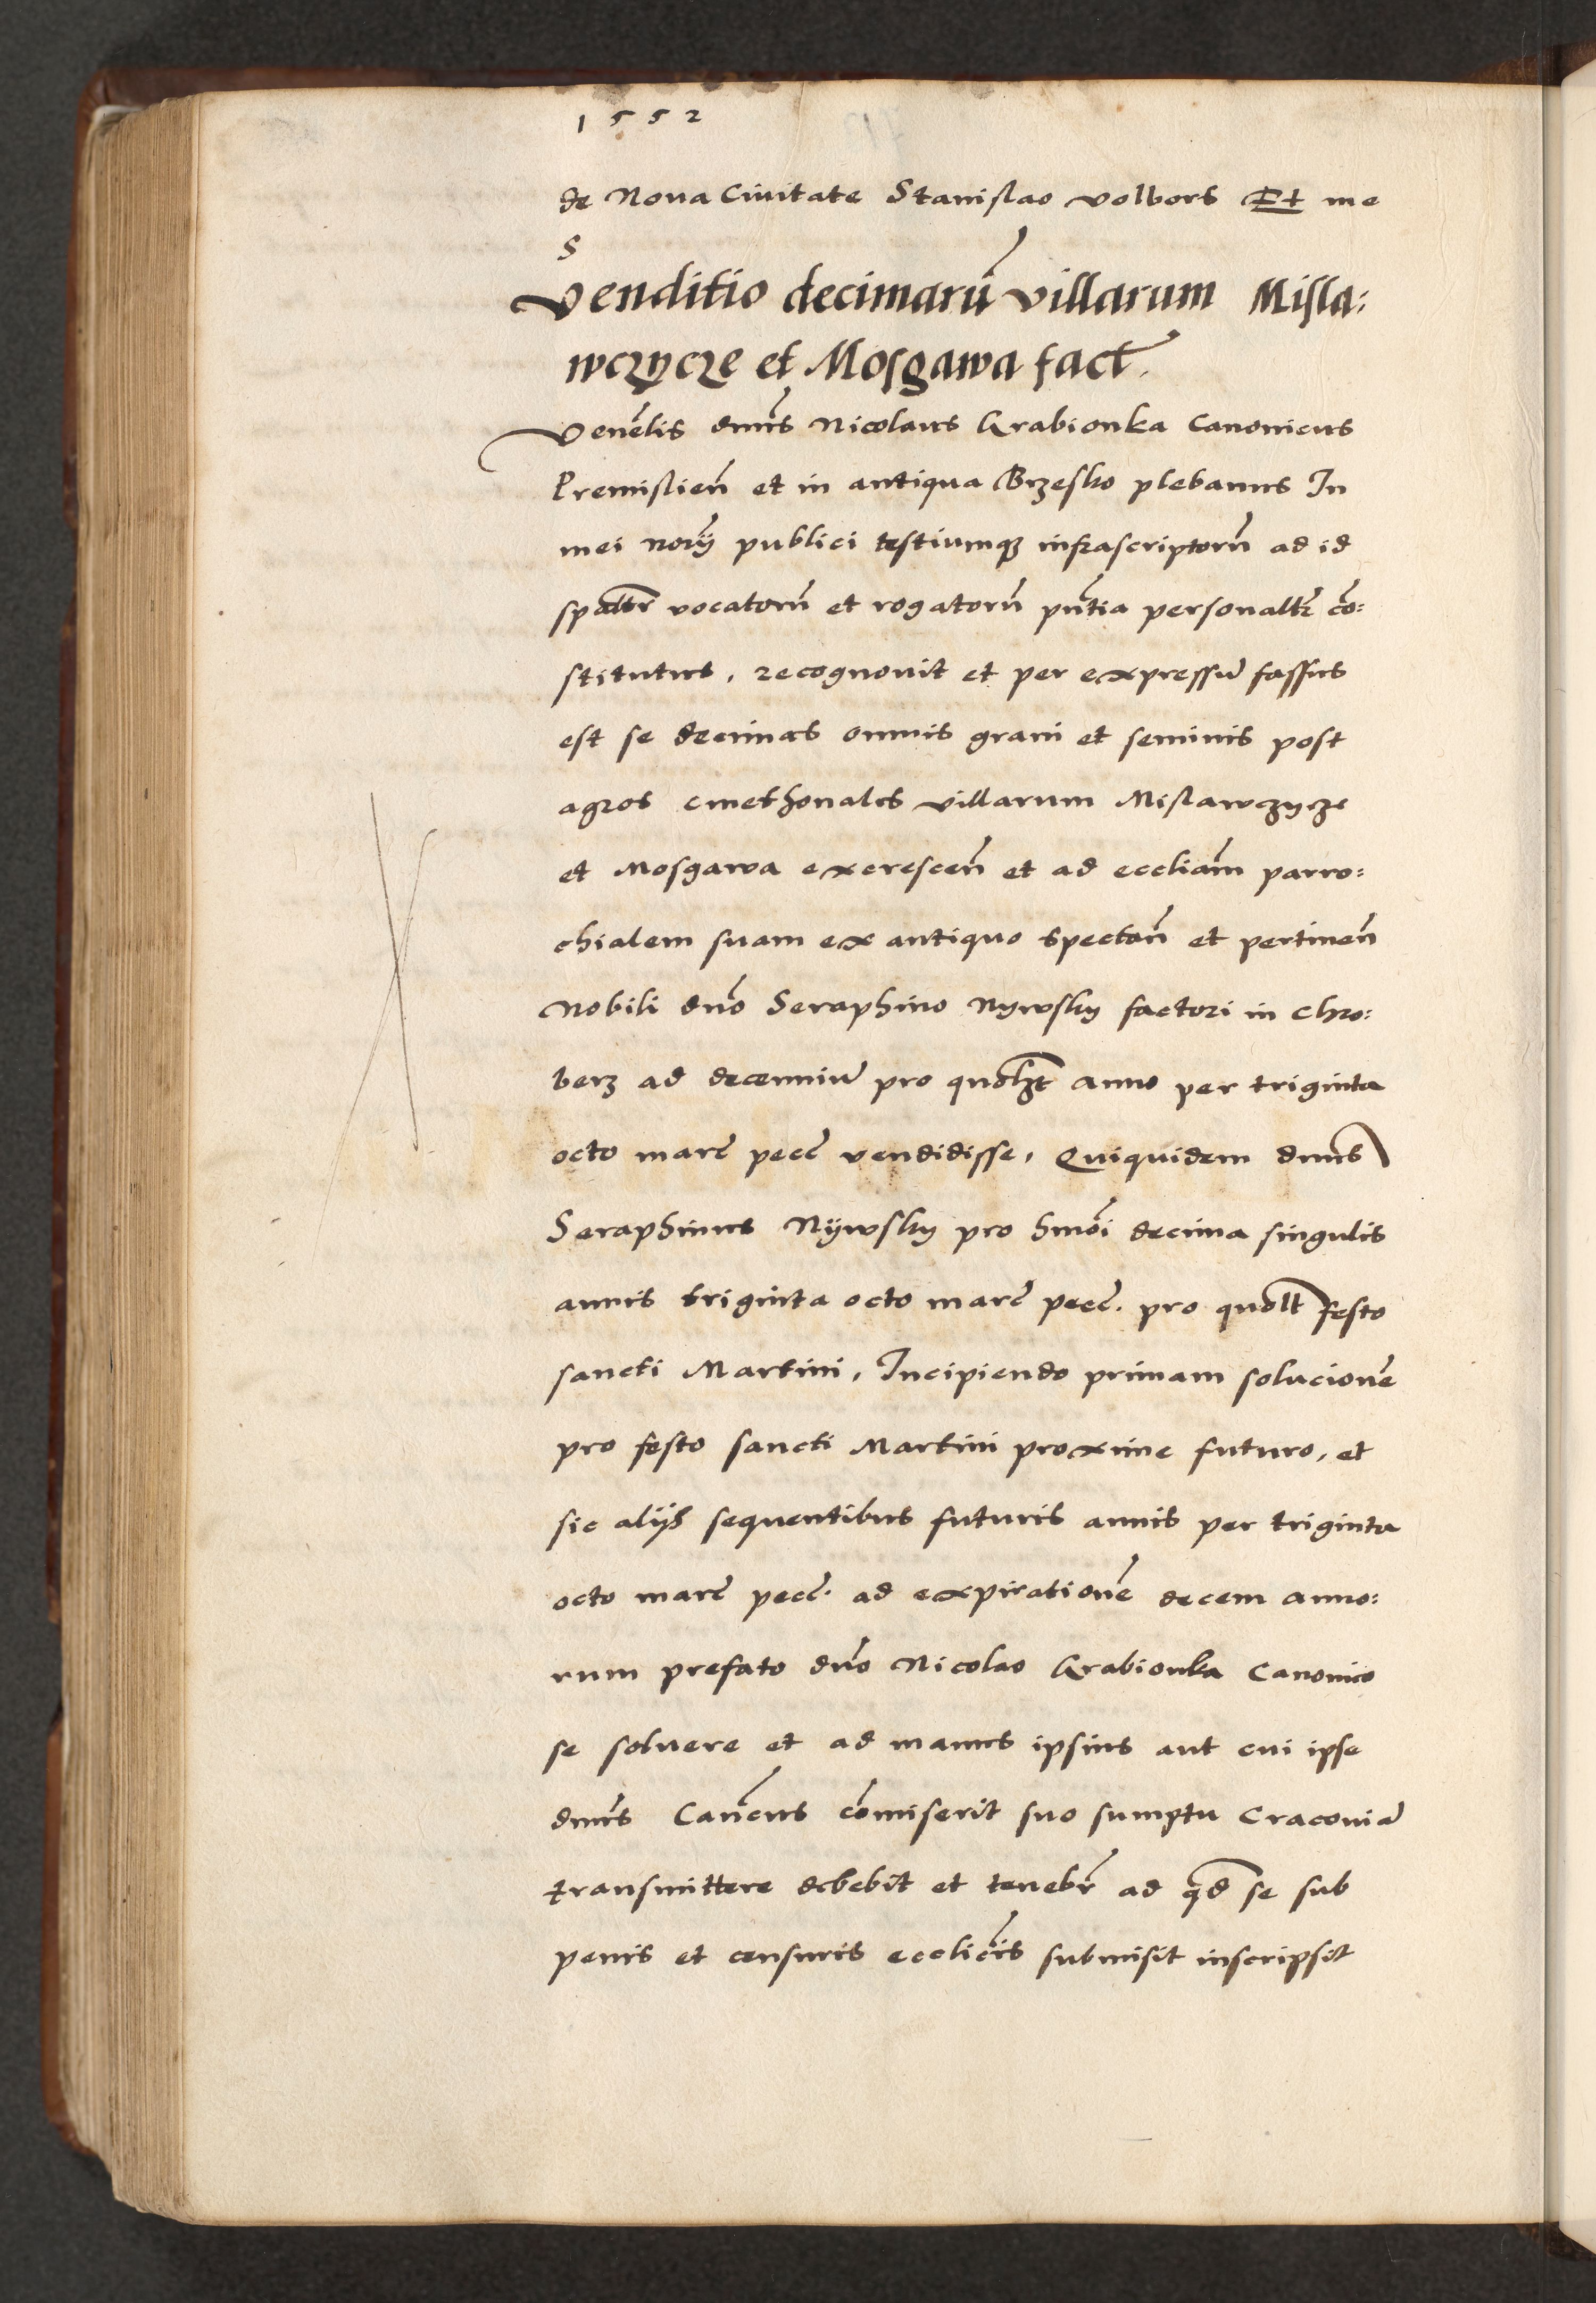 1552
de Noua Ciuitate Stanislao volbors Et me
S
Venditio decimarū villarum Misla:
wczÿcze et Mosgawa fact.
Venēlis dnūs Nicolaus Grabionka Canonicus
Premislień et in antiqua Brzesko plebanus In
mei norÿ publici testiumqȝ infrascriptorū ad id
spāltr vocatorū et rogatorū pn̄tia personaltr̄ cō:
stitutus, recognouit et per expressū fassus
est se decimas omnis grani et seminis post
agros cmethonales villarum Mislawczycze
et Mosgawa excresceń et ad eccliām parro:
chialem suam ex antiquo spectań et pertineń
Nobili dnō Seraphino Nywsky factori in Chro:
berz ad decenniū pro quolt anno per triginta
octo marc̄ pecc̄ vendidisse, Quiquidem dnūs
Seraphinus Nÿwsky pro hmōi decima singulis
annis triginta octo marc̄ pecc̄. pro quolt festo
sancti Martini, Incipiendo primam solucionē
pro festo sancti Martini proxime futuro, et
sic alijs sequentibus futuris annis per triginta
octo marc̄ pecc̄. ad expirationē decem anno:
rum prefato dnō Nicolao Grabionka Canonico
se soluere et ad manus ipsius aut cui ipse
dnūs Canc̄us cōmiserit suo sumptu Cracouiā
transmittere debebit et tenebr̄ ad qd̄ se sub
penis et censuris ecclic̄is submisit inscripsit